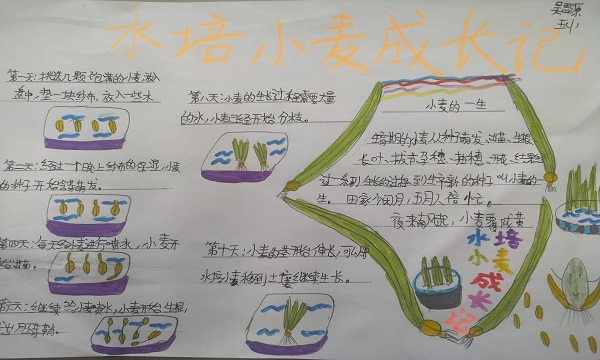 水培小麦成长记
吴思源
第一天:挑选几颗饱满的小麦,放入
盘中,垫一块纱布,放入一些水
第二天:经过一个晚上纱布的保湿,小麦
的种子开始萌发。
第四天:每天给小麦进行喷水,小麦开
始出苗。
继续给小麦喷水,小麦开始生根,
第八天:小麦的生长过程需要大量
的水,小麦开始分枝。
第十天:小麦的茎开始伸长,可以将
水培小麦移到土壤继续生长。
小麦的一生
生育期的小麦从种子萌发、出苗、生根、
长叶、拔节、孕穗、抽穗、开花、结果经
过一系列生长的过程到产生新的种子叫小麦的一
生。田家少闲月,五月人倍忙。
夜来南风起,小麦覆陇黄
水培小麦成长记